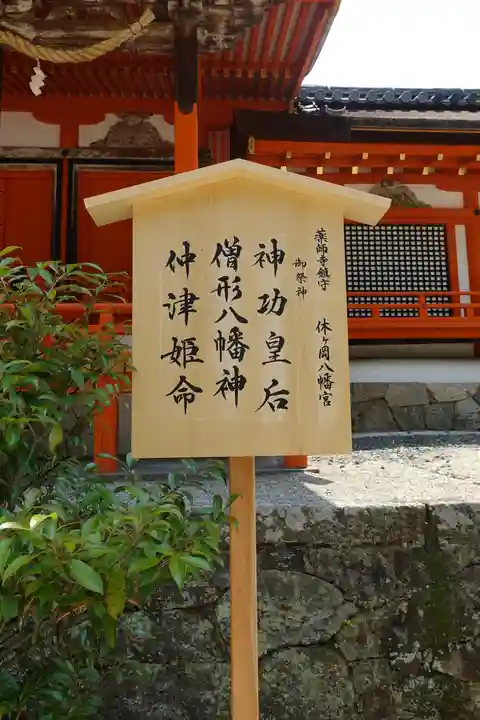 薬師寺鎮守 休ヶ岡八幡宮
御祭神
神功皇后
僧形八幡神
仲津姫命